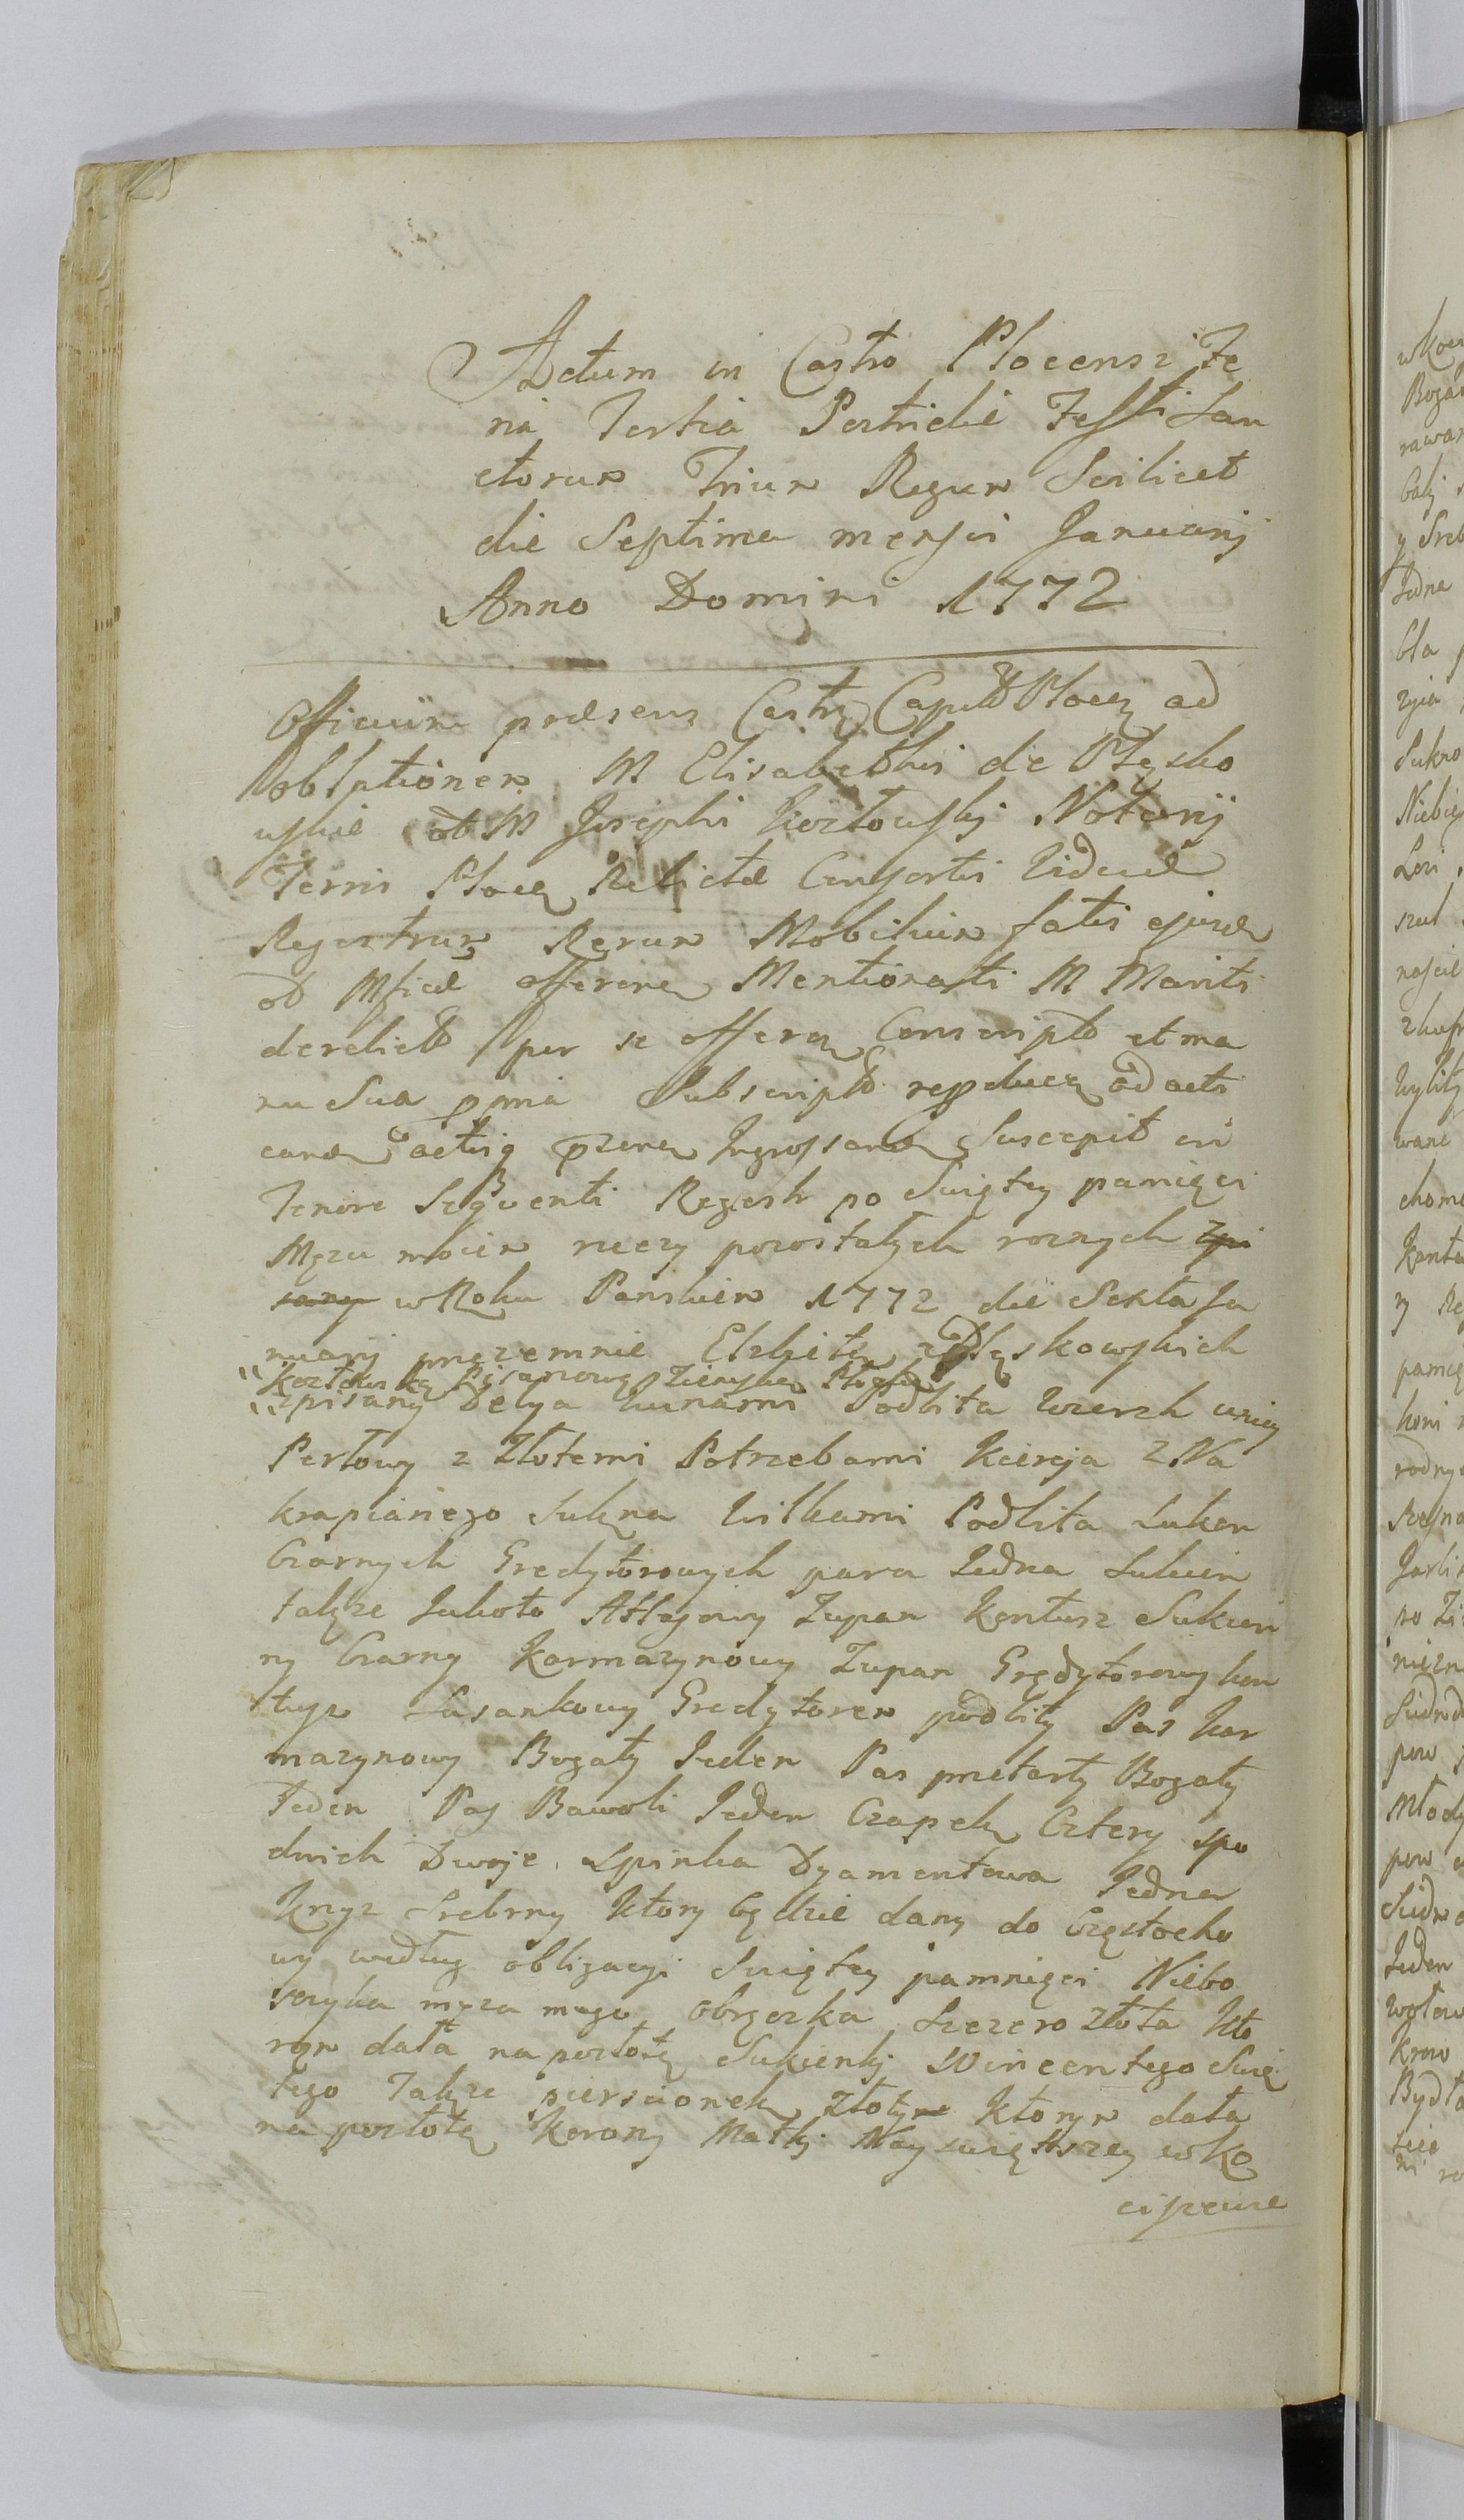 Actum in Castro Plocensi Fe
ria Tertia Postridie Festi San
ctorum Trium Regum Scilicet
die Septima mensis Januarij
Anno Domini 1772
Officium praesens Castr Capitl Plocen ad
oblationem M Elisabethis de Płęsko
wskie ol M Josephi Kozłowskj Notarij
Terris Plocen Relictae Consortis Viduae
Regestrum Rerum Mobilium fatis ejusd
ol Mficae offeren Mentionati M Mariti
derelict per se offeren Conscript et ma
nu Sua ppria Subscript reproducen ad acti
cand actisq pzen Ingrossand Suscepit in
Tenore Seqventi Regestr po Swiętey pamięci
Męzu moim rzeczy pozostałych roznych zpi
sany w Roku Panskim 1772 die Sexta Ja
nuarij przezemnie Elzbietę z Płęskowskich
Kozłowską Pisarzową Ziemską Płocką
zpisany Delya Kunami Podbita Wierzch
Perłowy z Złotemi Potrzebami Kiereja z Na
krapianego Sukna Wilkami Podbita Suken
Czarnych Gredytorowych para Jedna Sukien
takze Juboto Atłasowy Zupan Kontusz Sukien
ny Czarny Karmazynowy Zupan Grędytorowy kon
tusz Sasankowy Gredytorem podbity Pas kar
mazynowy Bogaty Jeden Pas przetarty Bogaty
Jeden Pas Bawoli Jeden Czapek Cztery Spo
dnich Dwoje Spinka Dyamentowa Jedna
Krzyz Srebrny Ktory będzie dany do Częstocho
wy według obligacyi Swiętey pamnięci Niebo
szczyka męza mego obrączka Szczero złota Kto
rąm dała na pozłotę Sukienkj Wincentego Swię
tego Takze piersconek Złoty Ktorym dała
na pozłotę Korony Matkj Nayswiętszey w Ko